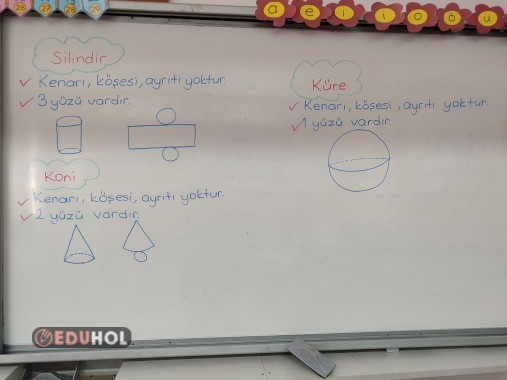 28 27 28 29
a e ı i o ö u
Silindir
Kenarı, köşesi, ayrıtı yoktur.
3 yüzü vardır.
Koni
Kenarı, köşesi, ayrıtı yoktur.
2 yüzü vardır.
Küre
Kenarı, köşesi, ayrıtı yoktur.
1 yüzü vardır.
EDUHOL